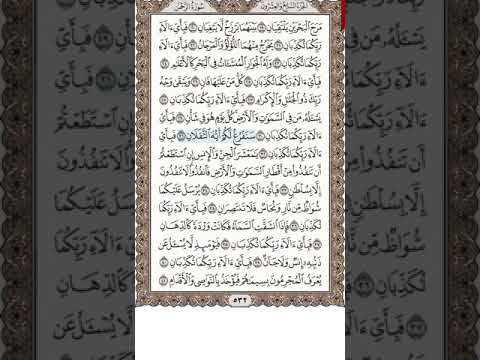 الجُزءُ السَّابِعُ وَالعِشْرُونَ سُورَةُ الرَّحْمَٰن
مَرَجَ الْبَحْرَيْنِ يَلْتَقِيَانِ ١٩ بَيْنَهُمَا بَرْزَخٌ لَّا يَبْغِيَانِ ٢٠ فَبِأَيِّ ءَالَآءِ
رَبِّكُمَا تُكَذِّبَانِ ٢١ يَخْرُجُ مِنْهُمَا اللُّؤْلُؤُ وَالْمَرْجَانُ ٢٢ فَبِأَيِّ ءَالَآءِ
رَبِّكُمَا تُكَذِّبَانِ ٢٣ وَلَهُ الْجَوَارِ الْمُنشَـَٔاتُ فِي الْبَحْرِ كَالْأَعْلَٰمِ ٢٤
فَبِأَيِّ ءَالَآءِ رَبِّكُمَا تُكَذِّبَانِ ٢٥ كُلُّ مَنْ عَلَيْهَا فَانٍ ٢٦ وَيَبْقَىٰ وَجْهُ
رَبِّكَ ذُو الْجَلَٰلِ وَالْإِكْرَامِ ٢٧ فَبِأَيِّ ءَالَآءِ رَبِّكُمَا تُكَذِّبَانِ ٢٨
يَسْـَٔلُهُ مَن فِي السَّمَٰوَٰتِ وَالْأَرْضِ كُلَّ يَوْمٍ هُوَ فِي شَأْنٍ ٢٩ فَبِأَيِّ
ءَالَآءِ رَبِّكُمَا تُكَذِّبَانِ ٣٠ سَنَفْرُغُ لَكُمْ أَيُّهَ الثَّقَلَانِ ٣١ فَبِأَيِّ
ءَالَآءِ رَبِّكُمَا تُكَذِّبَانِ ٣٢ يَٰمَعْشَرَ الْجِنِّ وَالْإِنسِ إِنِ اسْتَطَعْتُمْ
أَن تَنفُذُوا مِنْ أَقْطَارِ السَّمَٰوَٰتِ وَالْأَرْضِ فَانفُذُوا لَا تَنفُذُونَ
إِلَّا بِسُلْطَٰنٍ ٣٣ فَبِأَيِّ ءَالَآءِ رَبِّكُمَا تُكَذِّبَانِ ٣٤ يُرْسَلُ عَلَيْكُمَا
شُوَاظٌ مِّن نَّارٍ وَنُحَاسٌ فَلَا تَنتَصِرَانِ ٣٥ فَبِأَيِّ ءَالَآءِ رَبِّكُمَا
تُكَذِّبَانِ ٣٦ فَإِذَا انشَقَّتِ السَّمَآءُ فَكَانَتْ وَرْدَةً كَالدِّهَانِ
٣٧ فَبِأَيِّ ءَالَآءِ رَبِّكُمَا تُكَذِّبَانِ ٣٨ فَيَوْمَئِذٍ لَّا يُسْـَٔلُ عَن
ذَنۢبِهِ إِنسٌ وَلَا جَآنٌّ ٣٩ فَبِأَيِّ ءَالَآءِ رَبِّكُمَا تُكَذِّبَانِ ٤٠
يُعْرَفُ الْمُجْرِمُونَ بِسِيمَٰهُمْ فَيُؤْخَذُ بِالنَّوَٰصِي وَالْأَقْدَامِ ٤١
٥٣٢